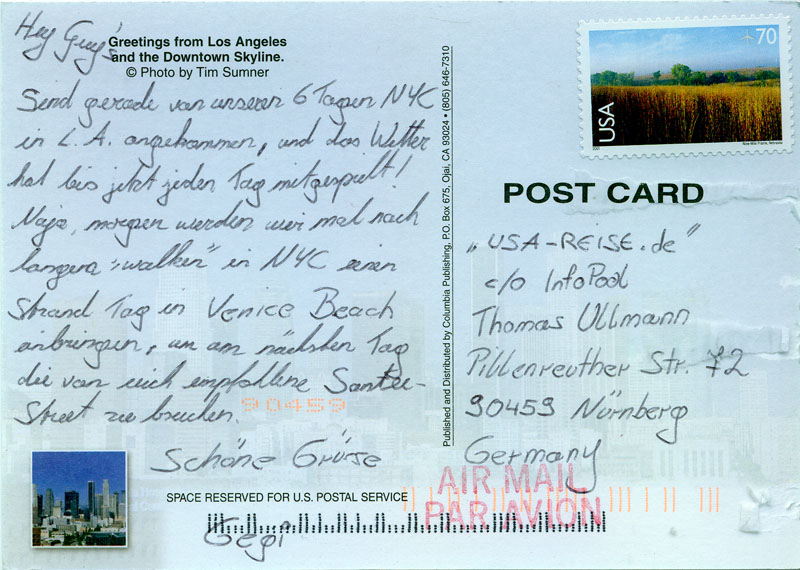 Hey Guy's
Greetings from Los Angeles
and the Downtown Skyline.
© Photo by Tim Sumner
Send gerade von unseren 6 Tagen NYC
in L.A. angekommen, und das Wetter
hat bis jetzt jeden Tag mitgespielt!
Naja, morgen werden wir mal nach
langem "walken" in NYC einen
Strand Tag in Venice Beach
anbringen, um am nächsten Tag
die von euch empfollene Santee-
Street zu besuchen.
90459
Schöne Grüsse
Gegi
SPACE RESERVED FOR U.S. POSTAL SERVICE
Published and Distributed by Columbia Publishing, P.O. Box 675, Ojai, CA 93024 • (805) 646-7310
70
USA
2001
Nine-Mile Prairie, Nebraska
POST CARD
„USA-REISE.de"
c/o InfoPool
Thomas Ullmann
Pillenreuther Str. 72
90459 Nürnberg
Germany
AIR MAIL
PAR AVION